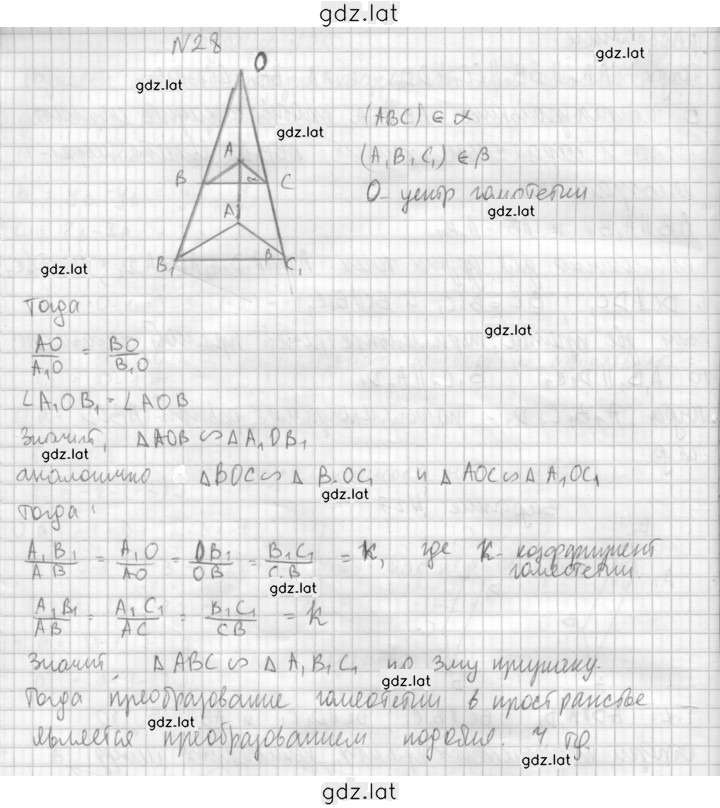 gdz.lat
N28
gdz.lat
O
gdz.lat
gdz.lat
(ABC) ∈ α
A
B α C
(A₁B₁C₁) ∈ β
O - центр гомотетии
gdz.lat
A₁
B₁ β C₁
gdz.lat
Тогда
gdz.lat
AO/A₁O = BO/B₁O
∠A₁OB₁ = ∠AOB
Значит, ΔAOB ∽ ΔA₁OB₁
gdz.lat
аналогично ΔBOC ∽ Δ B₁OC₁ и Δ AOC ∽ Δ A₁OC₁
gdz.lat
Тогда:
A₁B₁/AB = A₁O/AO = OB₁/OB = B₁C₁/CB = k, где k - коэффициент
гомотетии
gdz.lat
A₁B₁/AB = A₁C₁/AC = B₁C₁/CB = k
Значит, ΔABC ∽ ΔA₁B₁C₁ по 3му признаку.
gdz.lat
Тогда преобразование гомотетии в пространстве
gdz.lat
является преобразованием подобия. ч тр
gdz.lat
gdz.lat